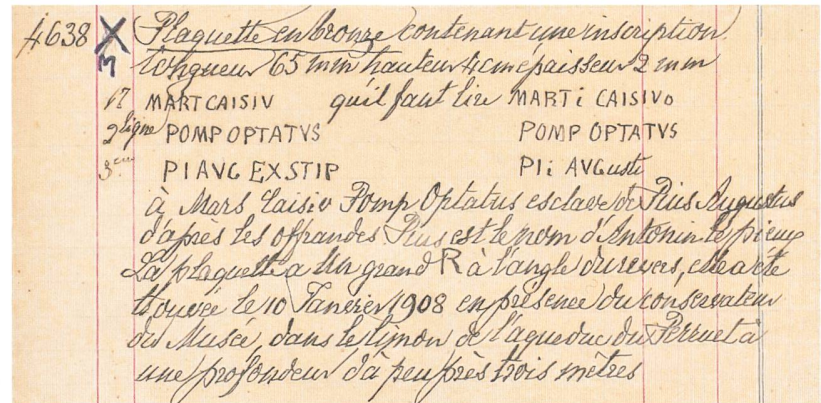 4638 X Plaquette en bronze contenant une inscription.
3 longueur 65 mm hauteur 4 cm épaisseur 2 mm
1º MART CAISIV qu'il faut lire MARTi CAISIVo
2 ligne POMP OPTATVS POMP OPTATVS
3eme PI AVG EXSTIP PIi AVGusti
à Mars Caisiv Pomp Optatus esclave de Pius Augustus
d'après les offrandes Pius est le nom d'Antonin le pieux
La plaquette a Un grand R à l'angle du revers, elle a été
trouvée le 10 Janvier 1908 en présence du conservateur
du Musée, dans le limon de l'aqueduc du Perruet à
une profondeur d'à peu près trois mètres